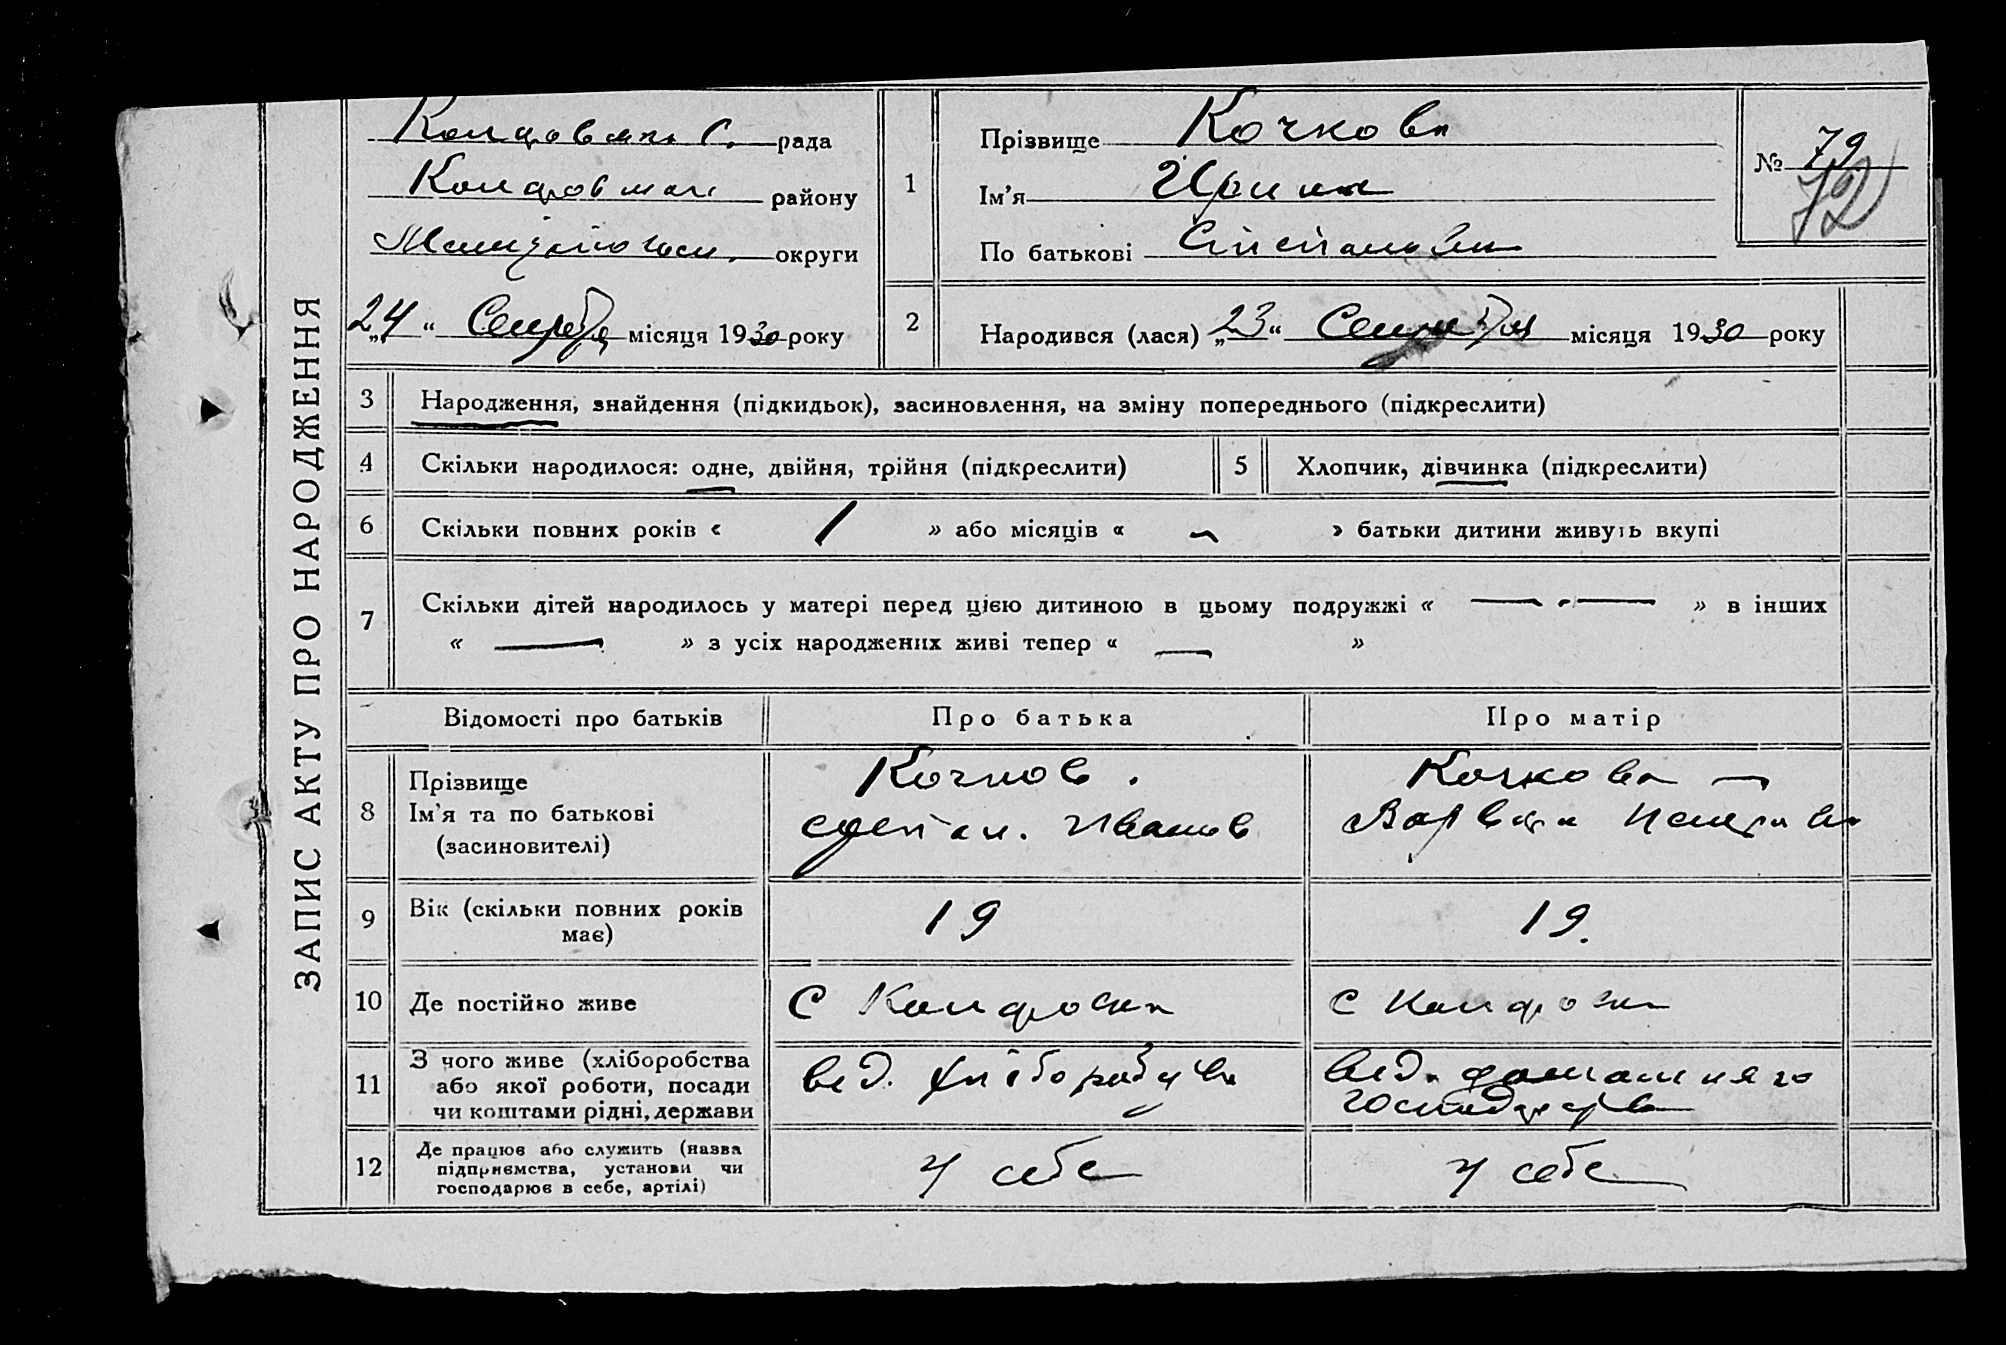 ЗАПИС АКТУ ПРО НАРОДЖЕННЯ
рада
району
округи
„24“ місяця 1930 року
1
Прізвище Кочкова
Ім’я
По батькові
№ 79
72
2
Народився (лася) „23“ місяця 1930 року
3
Народження, знайдення (підкидьок), засиновлення, на зміну попереднього (підкреслити)
4
Скільки народилося: одне, двійня, трійня (підкреслити)
5
Хлопчик, дівчинка (підкреслити)
6
Скільки повних років « 1 » або місяців « » батьки дитини живуть вкупі
7
Скільки дітей народилось у матері перед цією дитиною в цьому подружжі « — » в інших
« — » з усіх народжених живі тепер « — »
Відомості про батьків
Про батька
Про матір
8
Прізвище
Ім’я та по батькові
(засиновителі)
Кочков.
Иванов
Кочкова
9
Вік (скільки повних років
має)
19
19.
10
Де постійно живе
С
С
11
З чого живе (хліборобства
або якої роботи, посади
чи коштами рідні, держави
вед.
вед. домашняго
12
Де працює або служить (назва
підприємства, установи чи
господарює в себе, артілі)
у себе
у себе